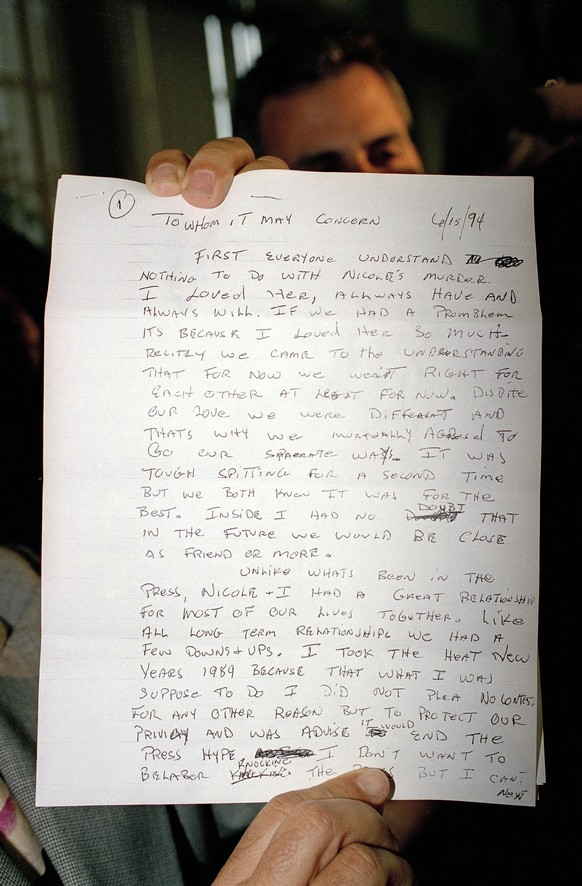 1
TO WHOM IT MAY CONCERN 6/15/94
FIRST EVERYONE UNDERSTAND
NOTHING TO DO WITH NICOLE'S MURDER.
I LOVED HER, ALLWAYS HAVE AND
ALWAYS WILL. IF WE HAD A PROMBLEM
ITS BECAUSE I LOVED HER SO MUCH.
RECITLY WE CAME TO the UNDERSTANDING
THAT FOR NOW WE WERN'T RIGHT FOR
EACH OTHER AT LEAST FOR NOW. DISPITE
OUR LOVE WE WERE DIFFERENT AND
THATS WHY WE MURTUALLY AGREED TO
GO OUR SPAERATE WAYS. IT WAS
TOUGH SPITTING FOR A SECOND TIME
BUT WE BOTH KNEW IT WAS FOR THE
BEST. INSIDE I HAD NO DOUBT THAT
IN THE FUTURE WE WOULD BE CLOSE
AS FRIEND OR MORE.
UNLIKE WHATS BEEN IN THE
PRESS, NICOLE + I HAD A GREAT RELATIONSHIP
FOR MOST OF OUR LIVES TOGETHER. LIKE
ALL LONG TERM RELATIONSHIPS WE HAD A
FEW DOWNS + UPS. I TOOK THE HEAT NEW
YEARS 1989 BECAUSE THAT WHAT I WAS
SUPPOSE TO DO I DID NOT PLEA NO CONTEST
FOR ANY OTHER REASON BUT TO PROTECT OUR
PRIVICY AND WAS ADVISE IT WOULD END THE
PRESS HYPE I DON'T WANT TO
BELABOR KNOCKING THE BUT I CAN'T
NEXT